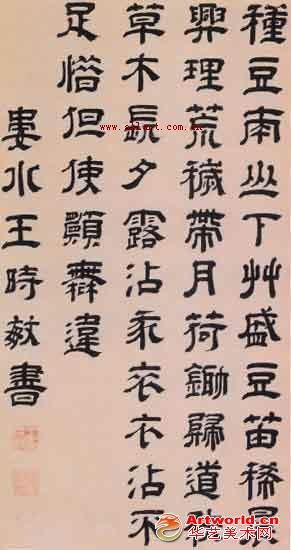 種豆南山下艸盛豆苗稀晨
興理荒穢帶月荷鋤歸道狹
草木長夕露沾我衣衣沾不
足惜但使願無違
婁水王時敏書
Artworld.cn
华艺美术网